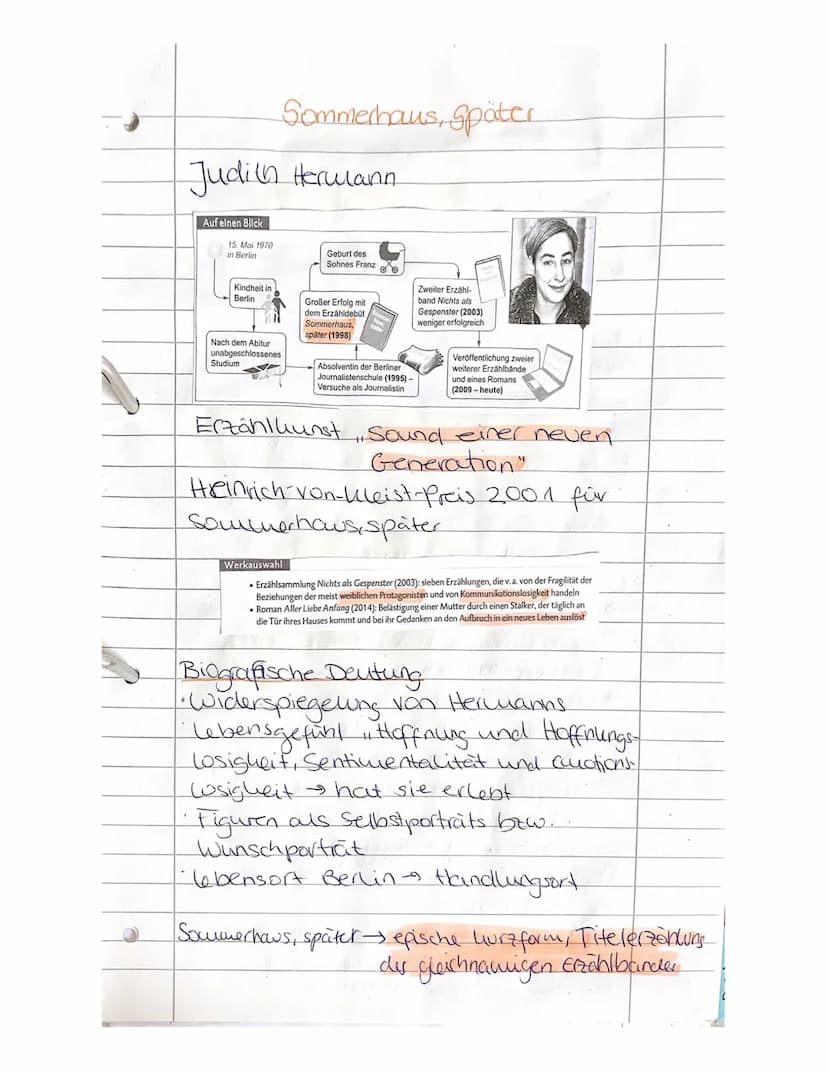 Sommerhaus, später
Judith Hermann
Auf einen Blick
15. Mai 1970
in Berlin
Kindheit in
Berlin
Nach dem Abitur
unabgeschlossenes
Studium
Absolventin der Berliner
Journalistenschule (1995) –
Versuche als Journalistin
Großer Erfolg mit
dem Erzähldebüt
Sommerhaus,
später (1998)
Geburt des
Sohnes Franz
Zweiter Erzähl-
band Nichts als
Gespenster (2003)
weniger erfolgreich
Veröffentlichung zweier
weiterer Erzählbände
und eines Romans
(2009 – heute)
Erzählkunst „Sound einer neuen
Generation"
Heinrich-von-Kleist-Preis 2001 für
Sommerhaus, später
Werkauswahl
• Erzählsammlung Nichts als Gespenster (2003): sieben Erzählungen, die v. a. von der Fragilität der
Beziehungen der meist weiblichen Protagonisten und von Kommunikationslosigkeit handeln
• Roman Aller Liebe Anfang (2014): Belästigung einer Mutter durch einen Stalker, der täglich an
die Tür ihres Hauses kommt und bei ihr Gedanken an den Aufbruch in ein neues Leben auslöst
Biografische Deutung
· Widerspiegelung von Hermanns
Lebensgefühl „Hoffnung und Hoffnungs-
losigkeit, Sentimentalität und emotions-
losigkeit → hat sie erlebt
· Figuren als Selbstporträts bzw.
Wunschporträt
· Lebensort Berlin → Handlungsort
Sommerhaus, später → epische Kurzform, Titelerzählung
des gleichnamigen Erzählbandes